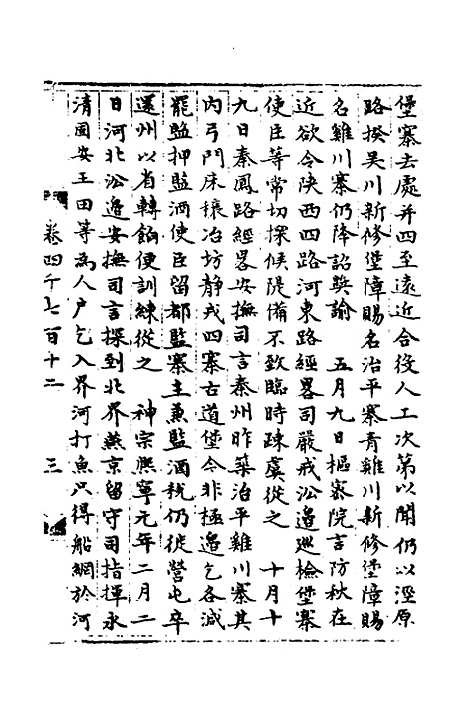 堡寨去處并四至遠近合役人工次第以聞仍以涇原
路揆吴川新修堡障賜名治平寨青雞川新修堡障賜
名雞川寨仍降詔奬諭　五月九日樞密院言防秋在
近欲令陜西四路河東路經畧司嚴戒沿邉巡檢堡寨
使臣等常切探候隄備不致臨時踈虞從之　十月十
九日秦鳳路經畧安撫司言秦州昨築治平雞川寨其
内弓門床穰冶坊静戎四寨古道堡今非極邉乞各減
罷監押監酒使臣留都監寨主兼監酒税仍徙營屯卒
還州以省轉餉便訓練從之　神宗熙寧元年二月二
日河北沿邉安撫司言探到北界燕京留守司指揮永
清固安王田等爲人户乞入界河打魚只得船網於河
卷四千七百十二　三